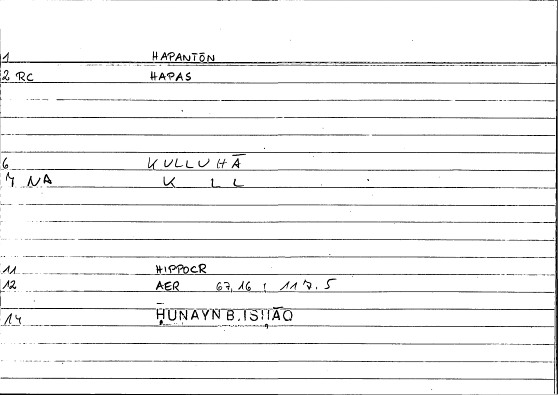 1 HAPANTŌN
2 RC HAPAS
6 KULLUHĀ
7 NA K L L
11 HIPPOCR
12 AER 67,16 ; 117.5
14 ḤUNAYN B. ISḤĀQ